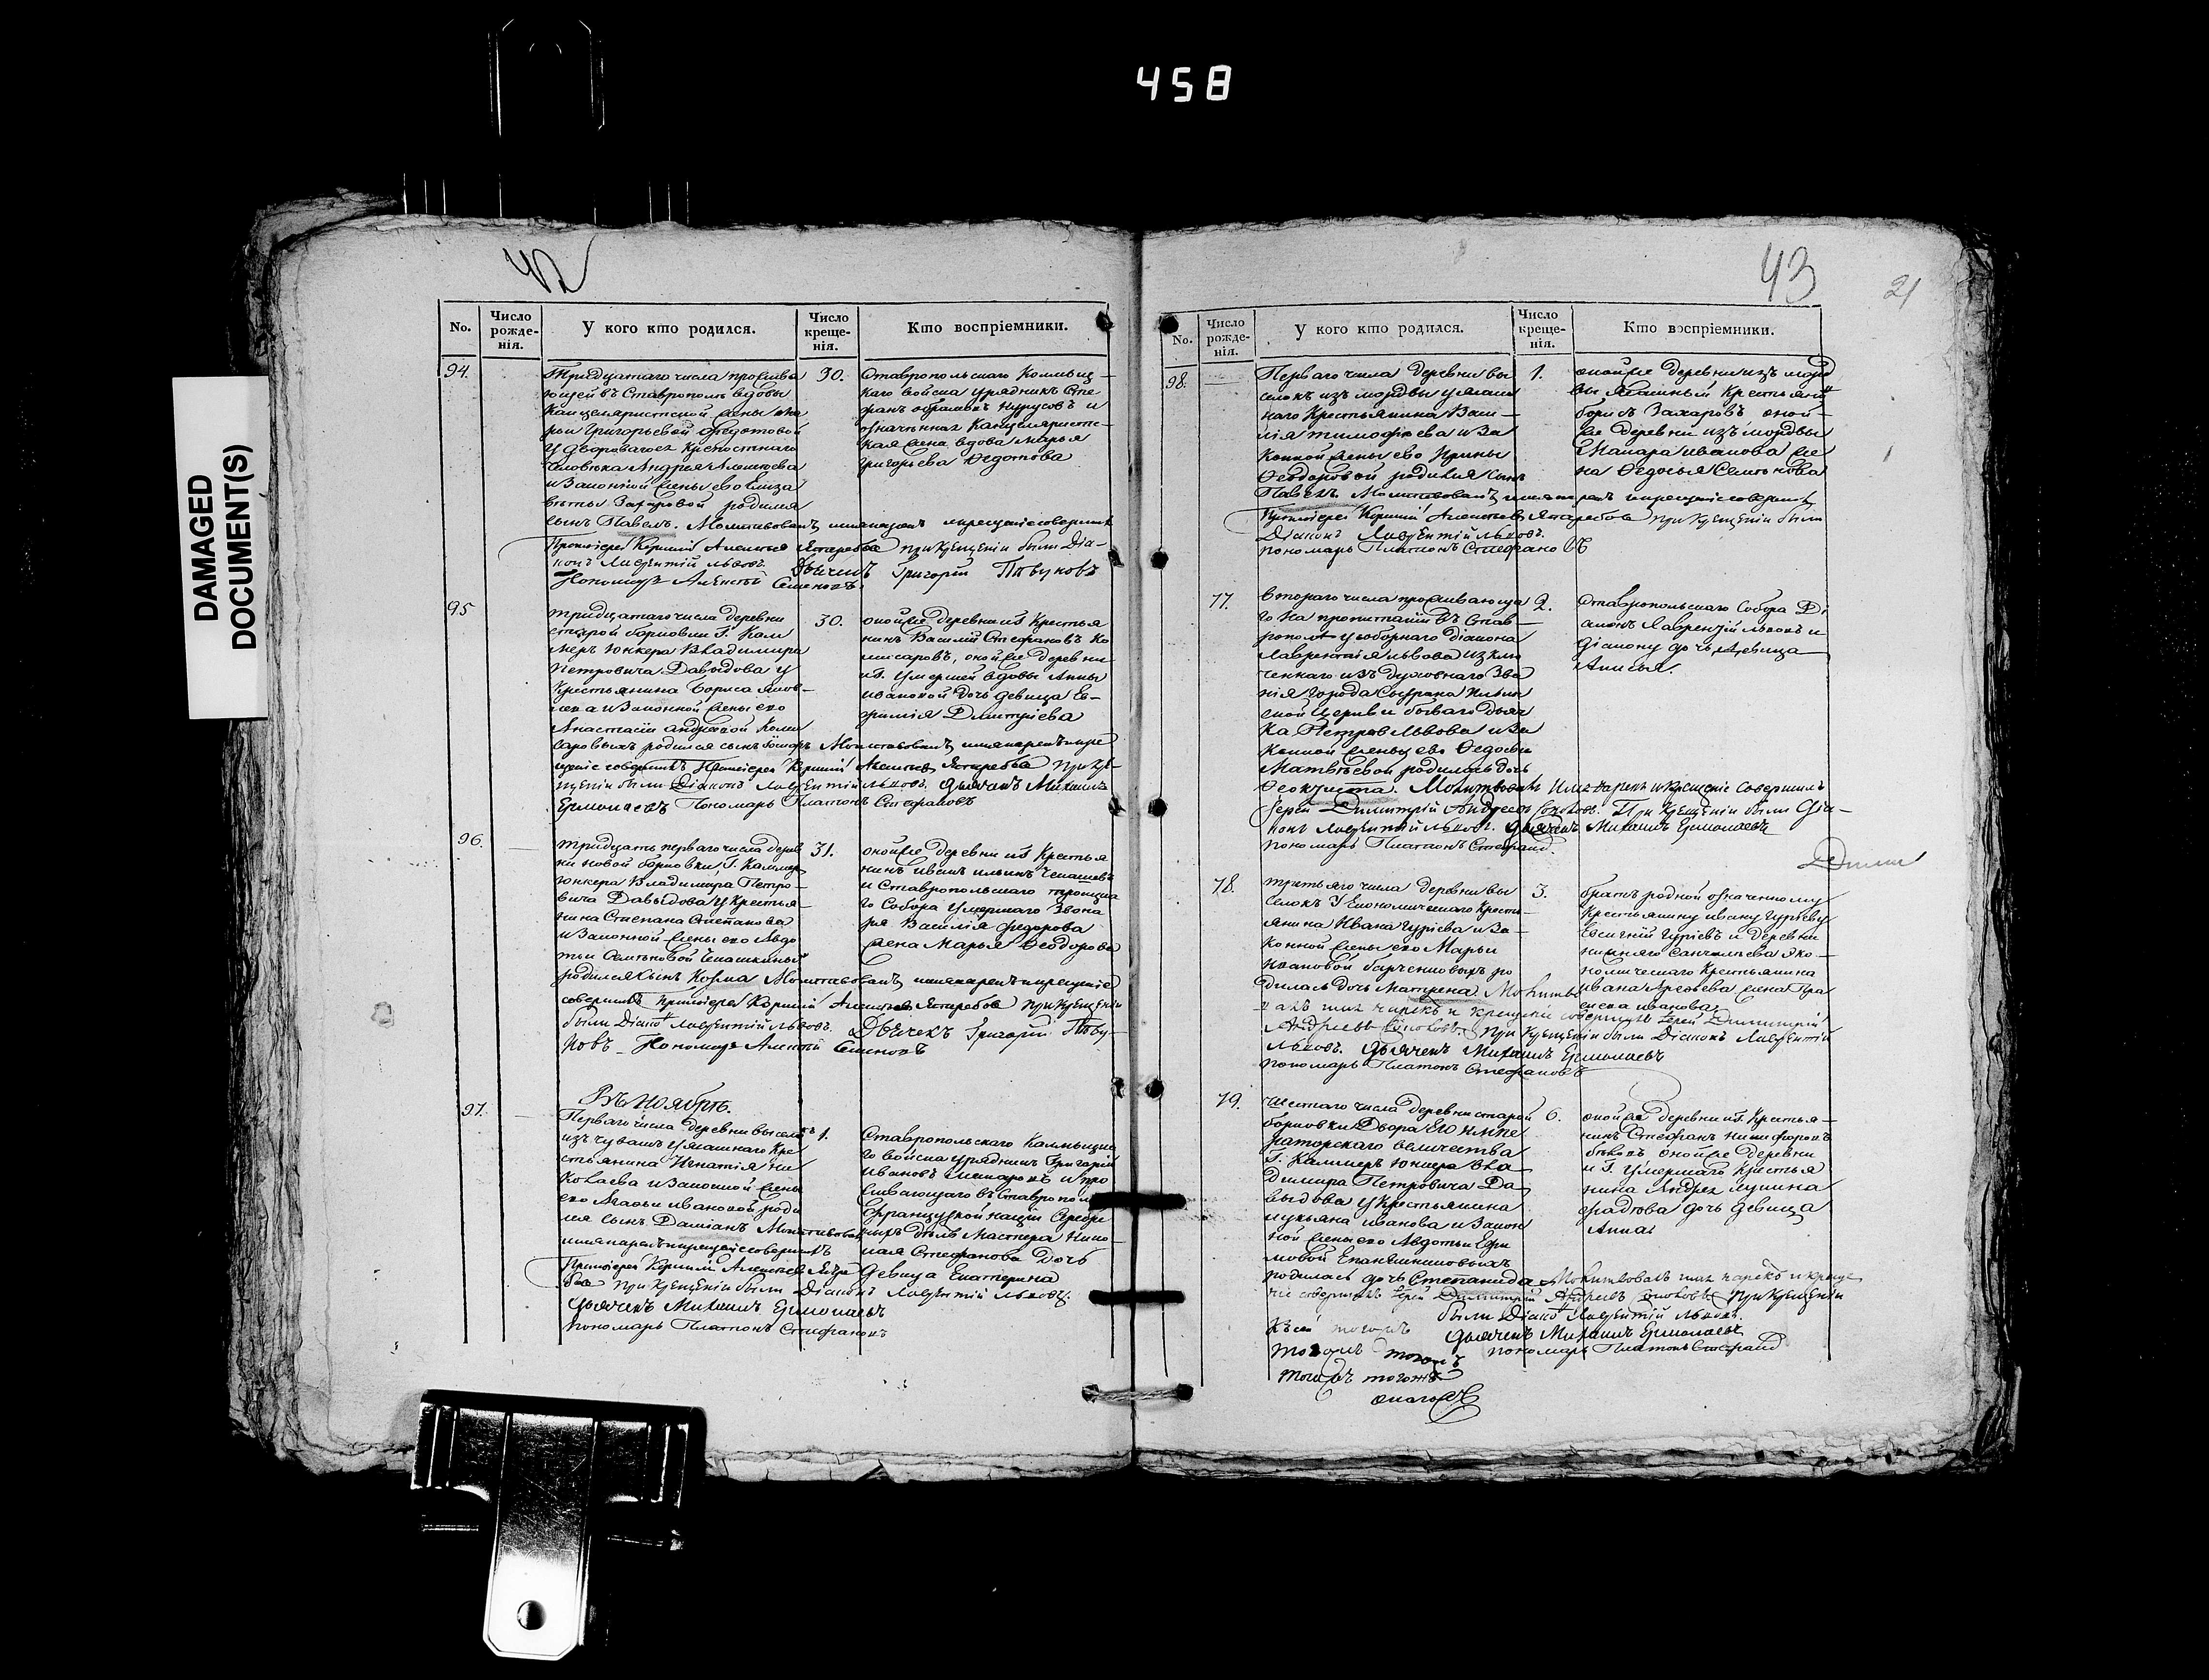 458
DAMAGED
DOCUMENT(S)
42
No.
Число рожденія.
У кого кто родился.
Число крещенія.
Кто воспріемники.
94.
Тридцатаго числа прожива
ющей въ Ставрополѣ вдовы
Канцеляристской жены Ма
рьи Григорьевой Федотовой
у двороваго ея крѣпостнаго
человѣка Андрея Алексѣева
и законной жены его Елиза
веты Захаровой родился
сынъ Павелъ. Молитвовалъ имянарекъ икрещеніе совершилъ
Протоіерей Корнилій Алексѣевъ Ястребовъ при крещеніи были Діа-
конъ Лаврентій Львовъ. Дьячекъ Григорій
Пономарь Алексѣй Семеновъ.
30.
Ставропольскаго Калмыц-
каго войска урядникъ Сте-
фанъ и
означенная Канцелярист-
ская жена вдова Марья
Григорьева Федотова
95
Тридцатаго числа деревни
старой борковки Г. Кам
меръ Юнкера Владимира
Петровича Давыдова у
крестьянина Бориса Яков-
лева и законной жены его
Анастасіи Андреевой Коми
саровыхъ родился сынъ Молитвовалъ имянарекъ икре
щеніе совершилъ Протоіерей Корнилій Алексѣевъ Ястребовъ при кре-
щеніи были Діаконъ Лаврентій Львовъ. Дьячекъ Михаилъ
Ермолаевъ Пономарь Платонъ Стефановъ
30.
оной же деревни и Г. Крестья
нинъ Василій Стефановъ Ко
мисаровъ, оной же деревни
и Г. умершей вдовы Анны
Ивановой дочь девица Ев-
фимія Дмитріева
96.
Тридцать перваго числа дерев
ни новой борковки, Г. Каммер
Юнкера Владимира Петро-
вича Давыдова у крестья-
нина Степана Степанова
и законной жены его Авдо
тьи Семеновой
родился сынъ Козма Молитвовалъ имянарекъ икрещеніе
совершилъ Протоіерей Корнилій Алексѣевъ Ястребовъ при крещеніи
были Діаконъ Лаврентій Львовъ. Дьячекъ Григорій
Пономарь Алексѣй Семеновъ
31.
оной же деревни и Г. Крестья
нинъ Иванъ Ильинъ
и Ставропольскаго троицка
го Собора умершаго Звона
ря Василія Федорова
жена Марья Феодорова
97.
Въ Ноябрѣ.
Перваго числа деревни выселокъ
изъ чувашъ у яшашнаго Кре
стьянина Игнатія Ни
колаева и законной жены
его Ивановой роди
лся сынъ Даміанъ Молитвовалъ
имянарекъ икрещеніе совершилъ
Протоіерей Корнилій Алексѣевъ Ястре
бовъ при крещеніи были Діаконъ Лаврентій Львовъ.
Дьячекъ Михаилъ Ермолаевъ
Пономарь Платонъ Стефановъ
1.
Ставропольскаго Калмыцка
го войска урядникъ Григорій
Ивановъ и про
живающаго въ Ставрополѣ
Французкой націи Серебре
ныхъ дѣлъ мастера Нико
лая Стефанова дочь
девица Екатерина
43
21
No.
Число рожденія.
У кого кто родился.
Число крещенія.
Кто воспріемники.
98.
Перваго числа деревни вы
селокъ изъ мордвы у яшаш
наго Крестьянина Васи-
лія Тимофѣева и за
конной жены его Ирины
Феодоровой родился сынъ
Павелъ. Молитвовалъ имянарекъ икрещеніе совершилъ
Протоіерей Корнилій Алексѣевъ Ястребовъ при крещеніи были
Діаконъ Лаврентій Львовъ.
пономарь Платонъ Стефановъ
1.
оной же деревни изъ морд
вы яшашный Крестьянинъ
Борисъ Захаровъ оной-
же деревни изъ мордвы
Макара Иванова же
на Федосья Семенова
77.
Втораго числа проживающа
го на пропитаніи въ Став-
рополѣ у соборнаго діакона
Лаврентія Львова изклю
ченнаго изъ духовнаго зва
нія города Сызрана Ильин
ской Церкви бываго дьяч
ка Петра Львова и за
конной жены его Федосьи
Матвѣевой родилась дочь
Феоктиста. Молитвовалъ Имянарекъ и Крещеніе совершилъ
Іерей Димитрій Андреевъ Соколовъ. При крещеніи были Діа-
конъ Лаврентій Львовъ. Дьячекъ Михаилъ Ермолаевъ
пономарь Платонъ Стефановъ.
2.
Ставропольскаго Собора Ді
аконъ Лаврентій Львовъ и
діакону дочь девица
Анисья.
78.
Третьяго числа деревни вы
селокъ у Економическаго Кресть-
янина Ивана Гуріева и за-
конной жены его Марьи
Ивановой ро
дилась дочь Матрена. Молитво
валъ имя нарекъ и крещеніе совершилъ Іерей Димитрій
Андреевъ Соколовъ. При крещеніи были Діаконъ Лаврентій
Львовъ. Дьячекъ Михаилъ Ермолаевъ
пономарь Платонъ Стефановъ
3.
братъ родной означенному
Крестьянину Ивану Гуріеву
Евсигній Гуріевъ и деревни
нижняго Санчелѣева Эко-
номическаго Крестьянина
Ивана жена Пра
сковья Иванова
79.
Шестаго числа деревни старой
борковки Двора Его Импе
раторскаго величества
Г. Каммеръ Юнкера Вла
димира Петровича Да
выдова у крестьянина
Лукьяна Иванова и закон
ной жены его Авдотьи Ефи
мовой
родилась дочь Степанида Молитвовалъ имя нарекъ и креще
ніе совершилъ Іерей Димитрій Андреевъ Соколовъ При крещеніи
были Діаконъ Лаврентій Львовъ.
Дьячекъ Михаилъ Ермолаевъ
пономарь Платонъ Стефановъ
6.
оной же деревни и Г. Крестья-
нинъ Стефанъ Никифоровъ
оной же деревни
и Г. умершаго Крестья
нина Андрея
дочь девица
Анна